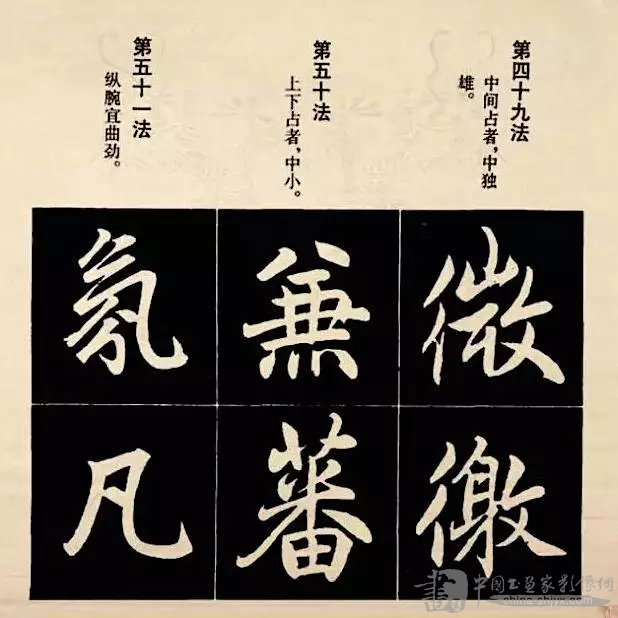 第四十九法
中间占者，中独
雄。
第五十法
上下占者，中小。
第五十一法
纵腕宜曲劲。
微
徼
兼
蕃
氛
凡
書 中国书画家影像网
china-shjyx.com